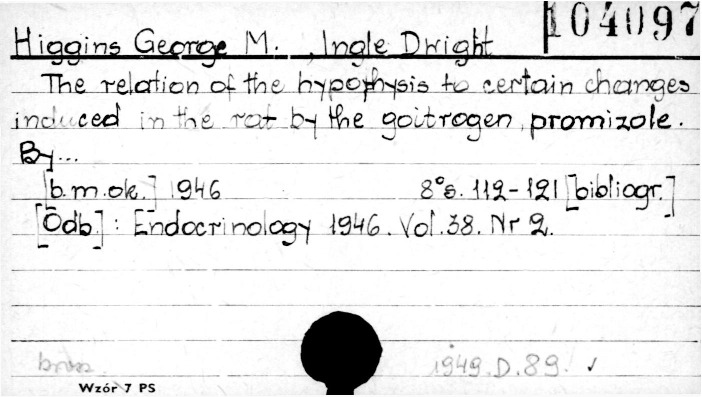 104097
Higgins George M. , Ingle Dwight
The relation of the hypophysis to certain changes
induced in the rat by the goitrogen, promizole.
By...
[b.m.ok.] 1946 8°s. 112-121 [bibliogr.]
[Odb.] : Endocrinology 1946. Vol.38. Nr 2.
brosz. 1949.D.89. ✓
Wzór 7 PS